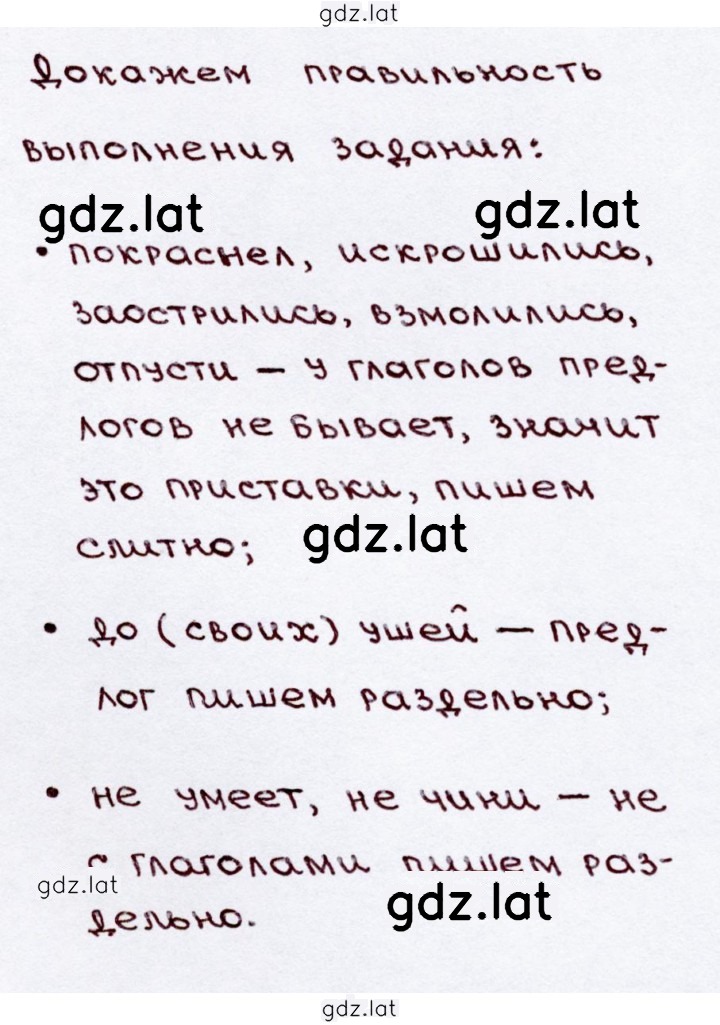 gdz.lat
Докажем правильность
выполнения задания:
gdz.lat gdz.lat
• покраснел, искрошились,
заострились, взмолились,
отпусти — у глаголов пред-
логов не бывает, значит
это приставки, пишем
слитно; gdz.lat
• до (своих) ушей — пред-
лог пишем раздельно;
• не умеет, не чини — не
с глаголами пишем раз-
gdz.lat
дельно. gdz.lat
gdz.lat